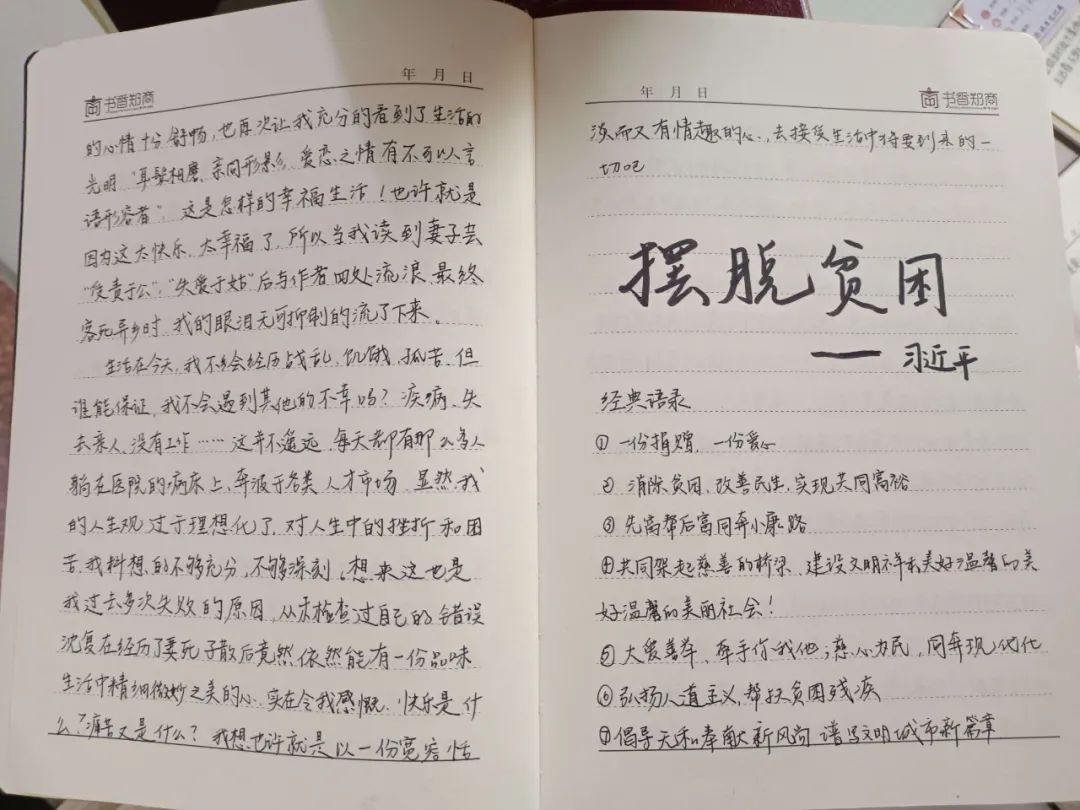 年 月 日
书香知商
的心情十分舒畅，也再次让我充分的看到了生活的
光明“耳鬓相磨，亲同形影，爱恋之情有不可以言
语形容者”。这是怎样的幸福生活！也许就是
因为这太快乐，太幸福了，所以当我读到妻子芸
“受责于公”，“失爱于姑”后与作者四处流浪、最终
客死异乡时，我的眼泪无可抑制的流了下来。
生活在今天，我不会经历战乱，饥饿，孤苦，但
谁能保证，我不会遇到其他的不幸吗？疾病、失
去亲人，没有工作……这并不遥远，每天都有那么多人
躺在医院的病床上，奔波于各类人才市场，显然，我
的人生观过于理想化了，对人生中的挫折和困
苦，我料想的不够充分，不够深刻。想来这也是
我过去多次失败的原因，从未检查过自己的错误
沈复在经历了妻死子散后竟然依然能有一份品味
生活中精细微妙之美的心，实在令我感慨，快乐是什
么？痛苦又是什么？我想也许就是以一份宽容恬
年 月 日
书香知商
淡而又有情趣的心，去接受生活中将要到来的一
切吧
摆脱贫困
——习近平
经典语录
①一份捐赠，一份爱心
②消除贫困，改善民生，实现共同富裕
③先富帮后富同奔小康路
④共同架起慈善的桥梁，建设文明祥和美好温馨的美
好温馨的美丽社会！
⑤大爱善举、牵手你我他；慈心为民，同奔现代化
⑥弘扬人道主义，帮扶贫困残疾
⑦倡导无私奉献新风尚 谱写文明城市新篇章